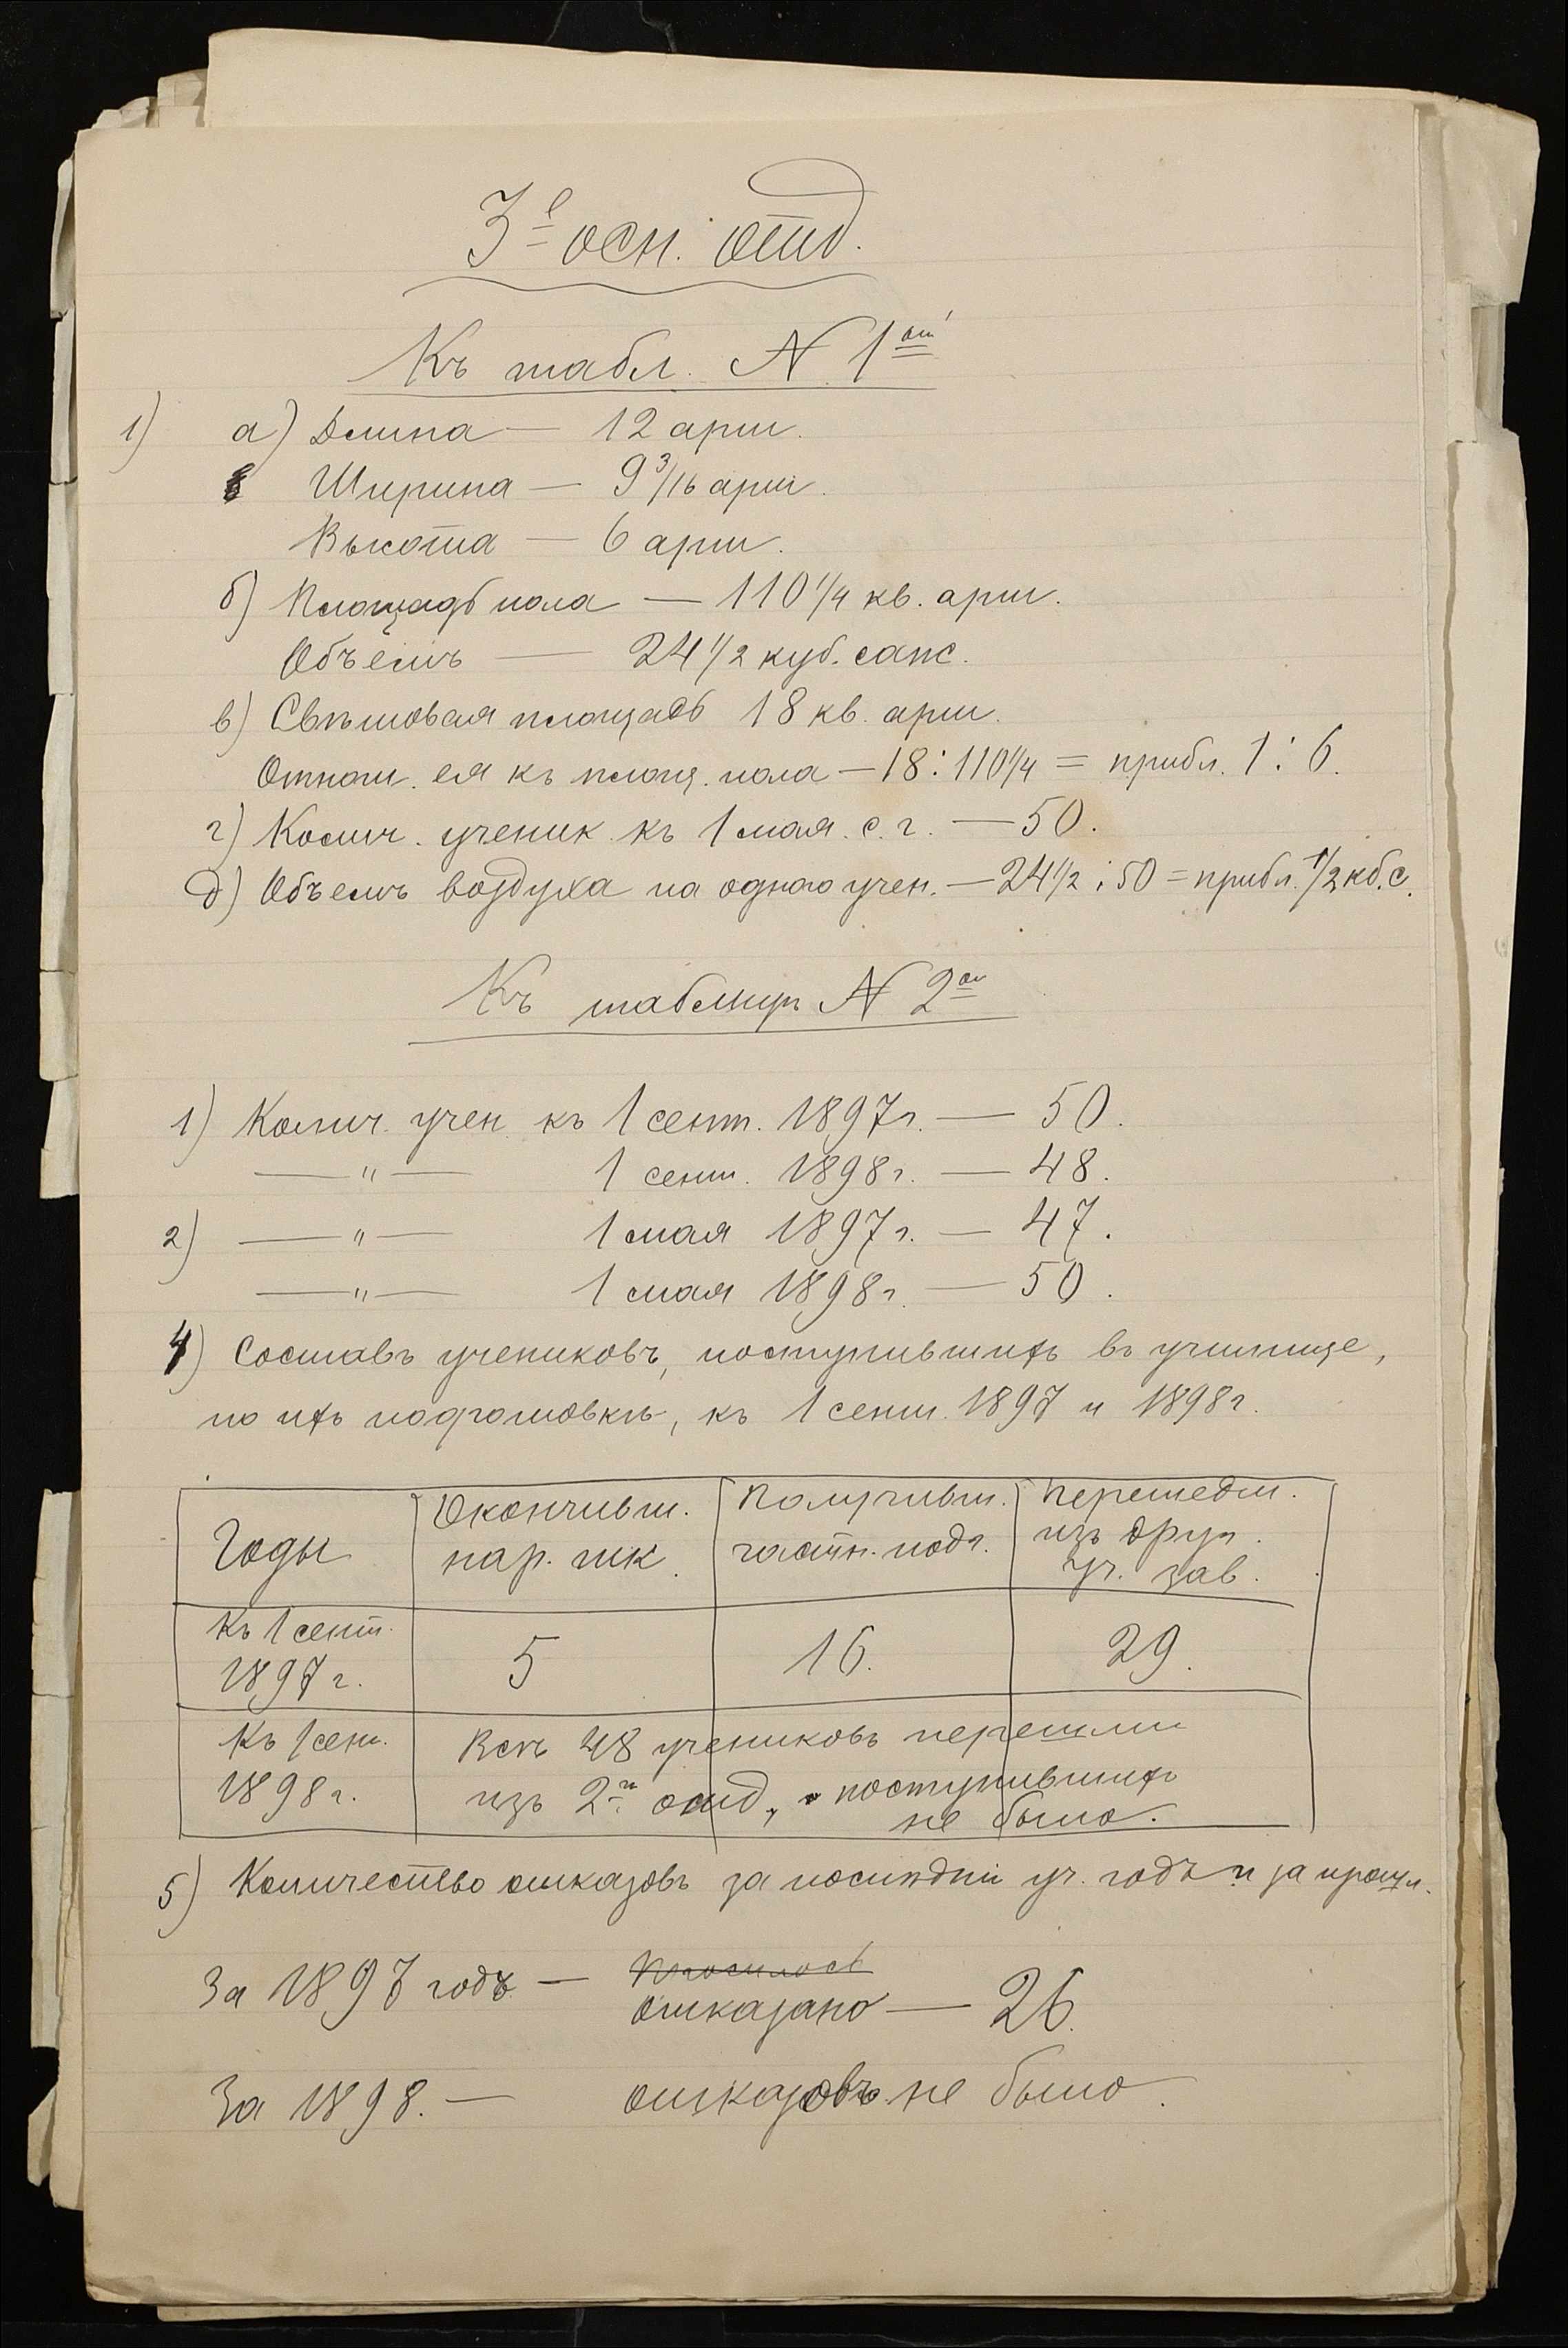 3е осн. отд.
Къ табл. N 1ой
1) а) Длина — 12 арш.
Ширина — 9 3/16 арш.
Высота — 6 арш.
б) Площадь пола — 110 1/4 кв. арш.
Объемъ — 24 1/2 куб. саж.
в) Свѣтовая площадь 18 кв. арш.
Отнош. ея къ площ. пола — 18 : 110 1/4 = прибл. 1 : 6.
г) Колич. ученик. къ 1 мая. с. г. — 50.
д) Объемъ воздуха на одного учен. — 24 1/2 : 50 = прибл. 1/2 кб. с.
Къ таблицѣ N 2ой
1) Колич. учен. къ 1 сент. 1897 г. — 50.
— " — 1 сент. 1898 г. — 48.
2) — " — 1 мая 1897 г. — 47.
— " — 1 мая 1898 г. — 50.
4) Составъ учениковъ, поступившихъ въ училище,
по ихъ подготовкѣ, къ 1 сент. 1897 и 1898 г.
Годы
Окончивш.
нар. шк.
Получивш.
частн. подг.
Перешедш.
изъ друг.
уч. зав.
Къ 1 сент.
1897 г.
5
16.
29.
Къ 1 сент.
1898 г.
Всѣ 48 учениковъ перешли
изъ 2го отд., поступившихъ
не было.
5) Количество отказовъ за послѣдній уч. годъ и за прошл.
За 1897 годъ — просилось
отказано — 26.
За 1898. — отказовъ не было.